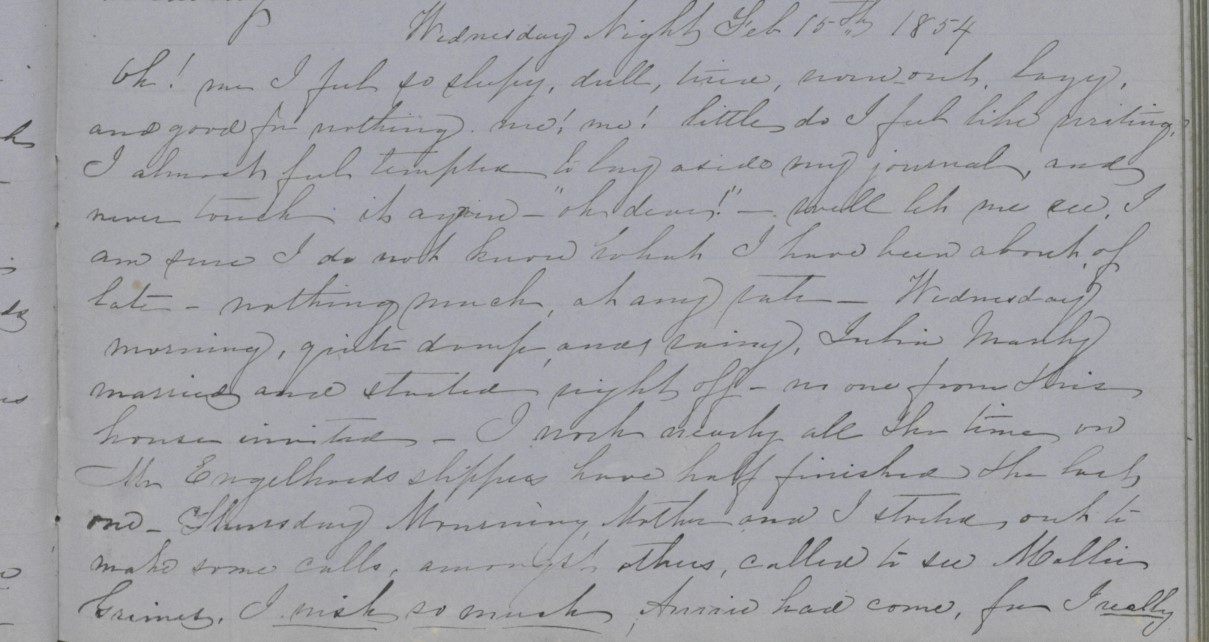 Wednesday Night Feb 15th 1854
Oh! me I feel so sleepy, dull, tired, worn out, lazy,
and good for nothing. me! me! little do I feel like writing,
I almost feel tempted to lay aside my journal, and
never touch it again - "oh dear!" - well let me see, I
am sure I do not know what I have been about of
late - nothing much, at any rate - Wednesday
morning, quite damp and rainy, Julia Manly
married and started right off - no one from this
house invited - I work nearly all the time on
Mr Engelhards slippers have half finished the last
one - Thursday Mourning Mother and I started out to
make some calls, amongst others, called to see Mollie
Grimes, I wish so much Annie had come, for I really